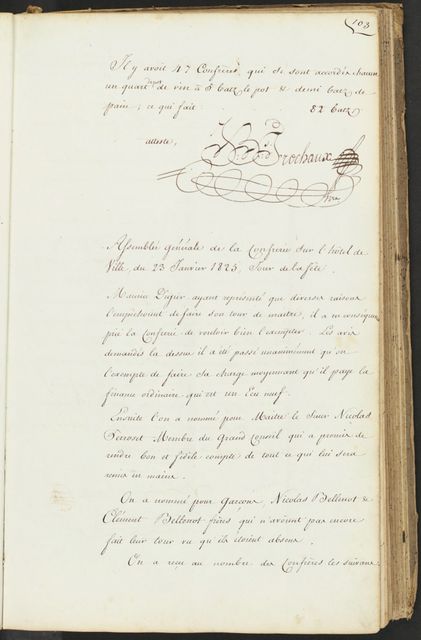 103
Il y avoit 47 Confrères qui se sont accordés chacun
un quart de pot de vin à 5 batz le pot & demi batz de
pain; ce qui fait 82 batz
atteste,
Trochaux
Assemblée générale de la Confrerie sur l'hôtel de
Ville, du 23 Janvier 1825, Jour de la fête.
Maurice Digier ayant représenté que diverses raisons
l'empêchoient de faire son tour de maitre, il a en conséquence
prié la Confrerie de vouloir bien l'exempter. Les avis
demandés la dessus il a été passé unanimément qu'on
l'exempte de faire sa charge moyennant qu'il paye la
finance ordinaire qui est un Ecu neuf.
Ensuite l'on a nommé pour Maitre le Sieur Nicolas
Perroset Membre du Grand Conseil qui a promis de
rendre bon et fidèle compte de tout ce qui lui sera
remis en mains.
On a nommé pour Garçons, Nicolas Bellenot &
Clément Bellenot frères qui n'avoient pas encore
fait leur tour vu qu'ils étoient absens.
On a reçu au nombre des Confrères les suivans